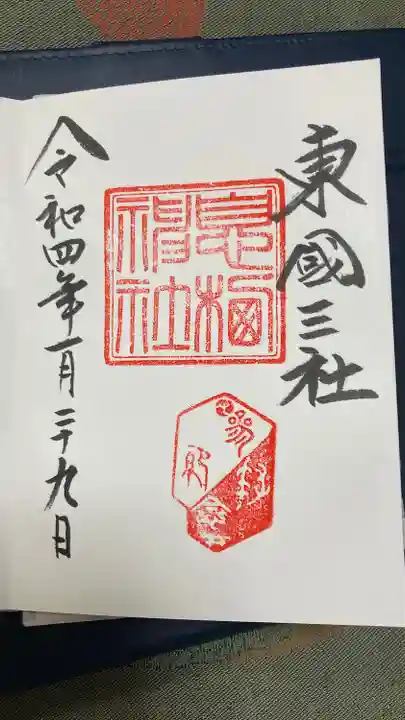 東國三社
息栖
神社
令和四年一月二十九日